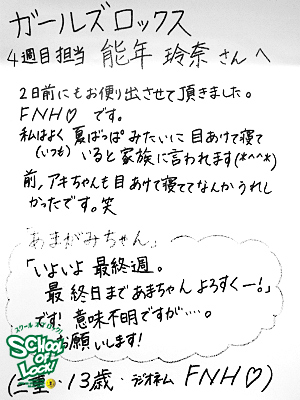 ガールズロックス
4週目担当 能年 玲奈 さんへ
2日前にもお便り出させて頂きました。
FNH♡ です。
私はよく 夏ばっぱ みたいに 目あけて寝て
(いつも) いると家族に言われます(*^^*)
前、アキちゃんも目あけて寝ててなんかうれし
かったです。笑
「あまがみちゃん」
「いよいよ 最終週。
最終日まであまちゃん よろすくー!」
です! 意味不明ですが・・・・。
お願いします!
スクール オブ ロック!
SCHOOL OF LOCK!
(三重・13歳・ラジオネーム FNH♡)